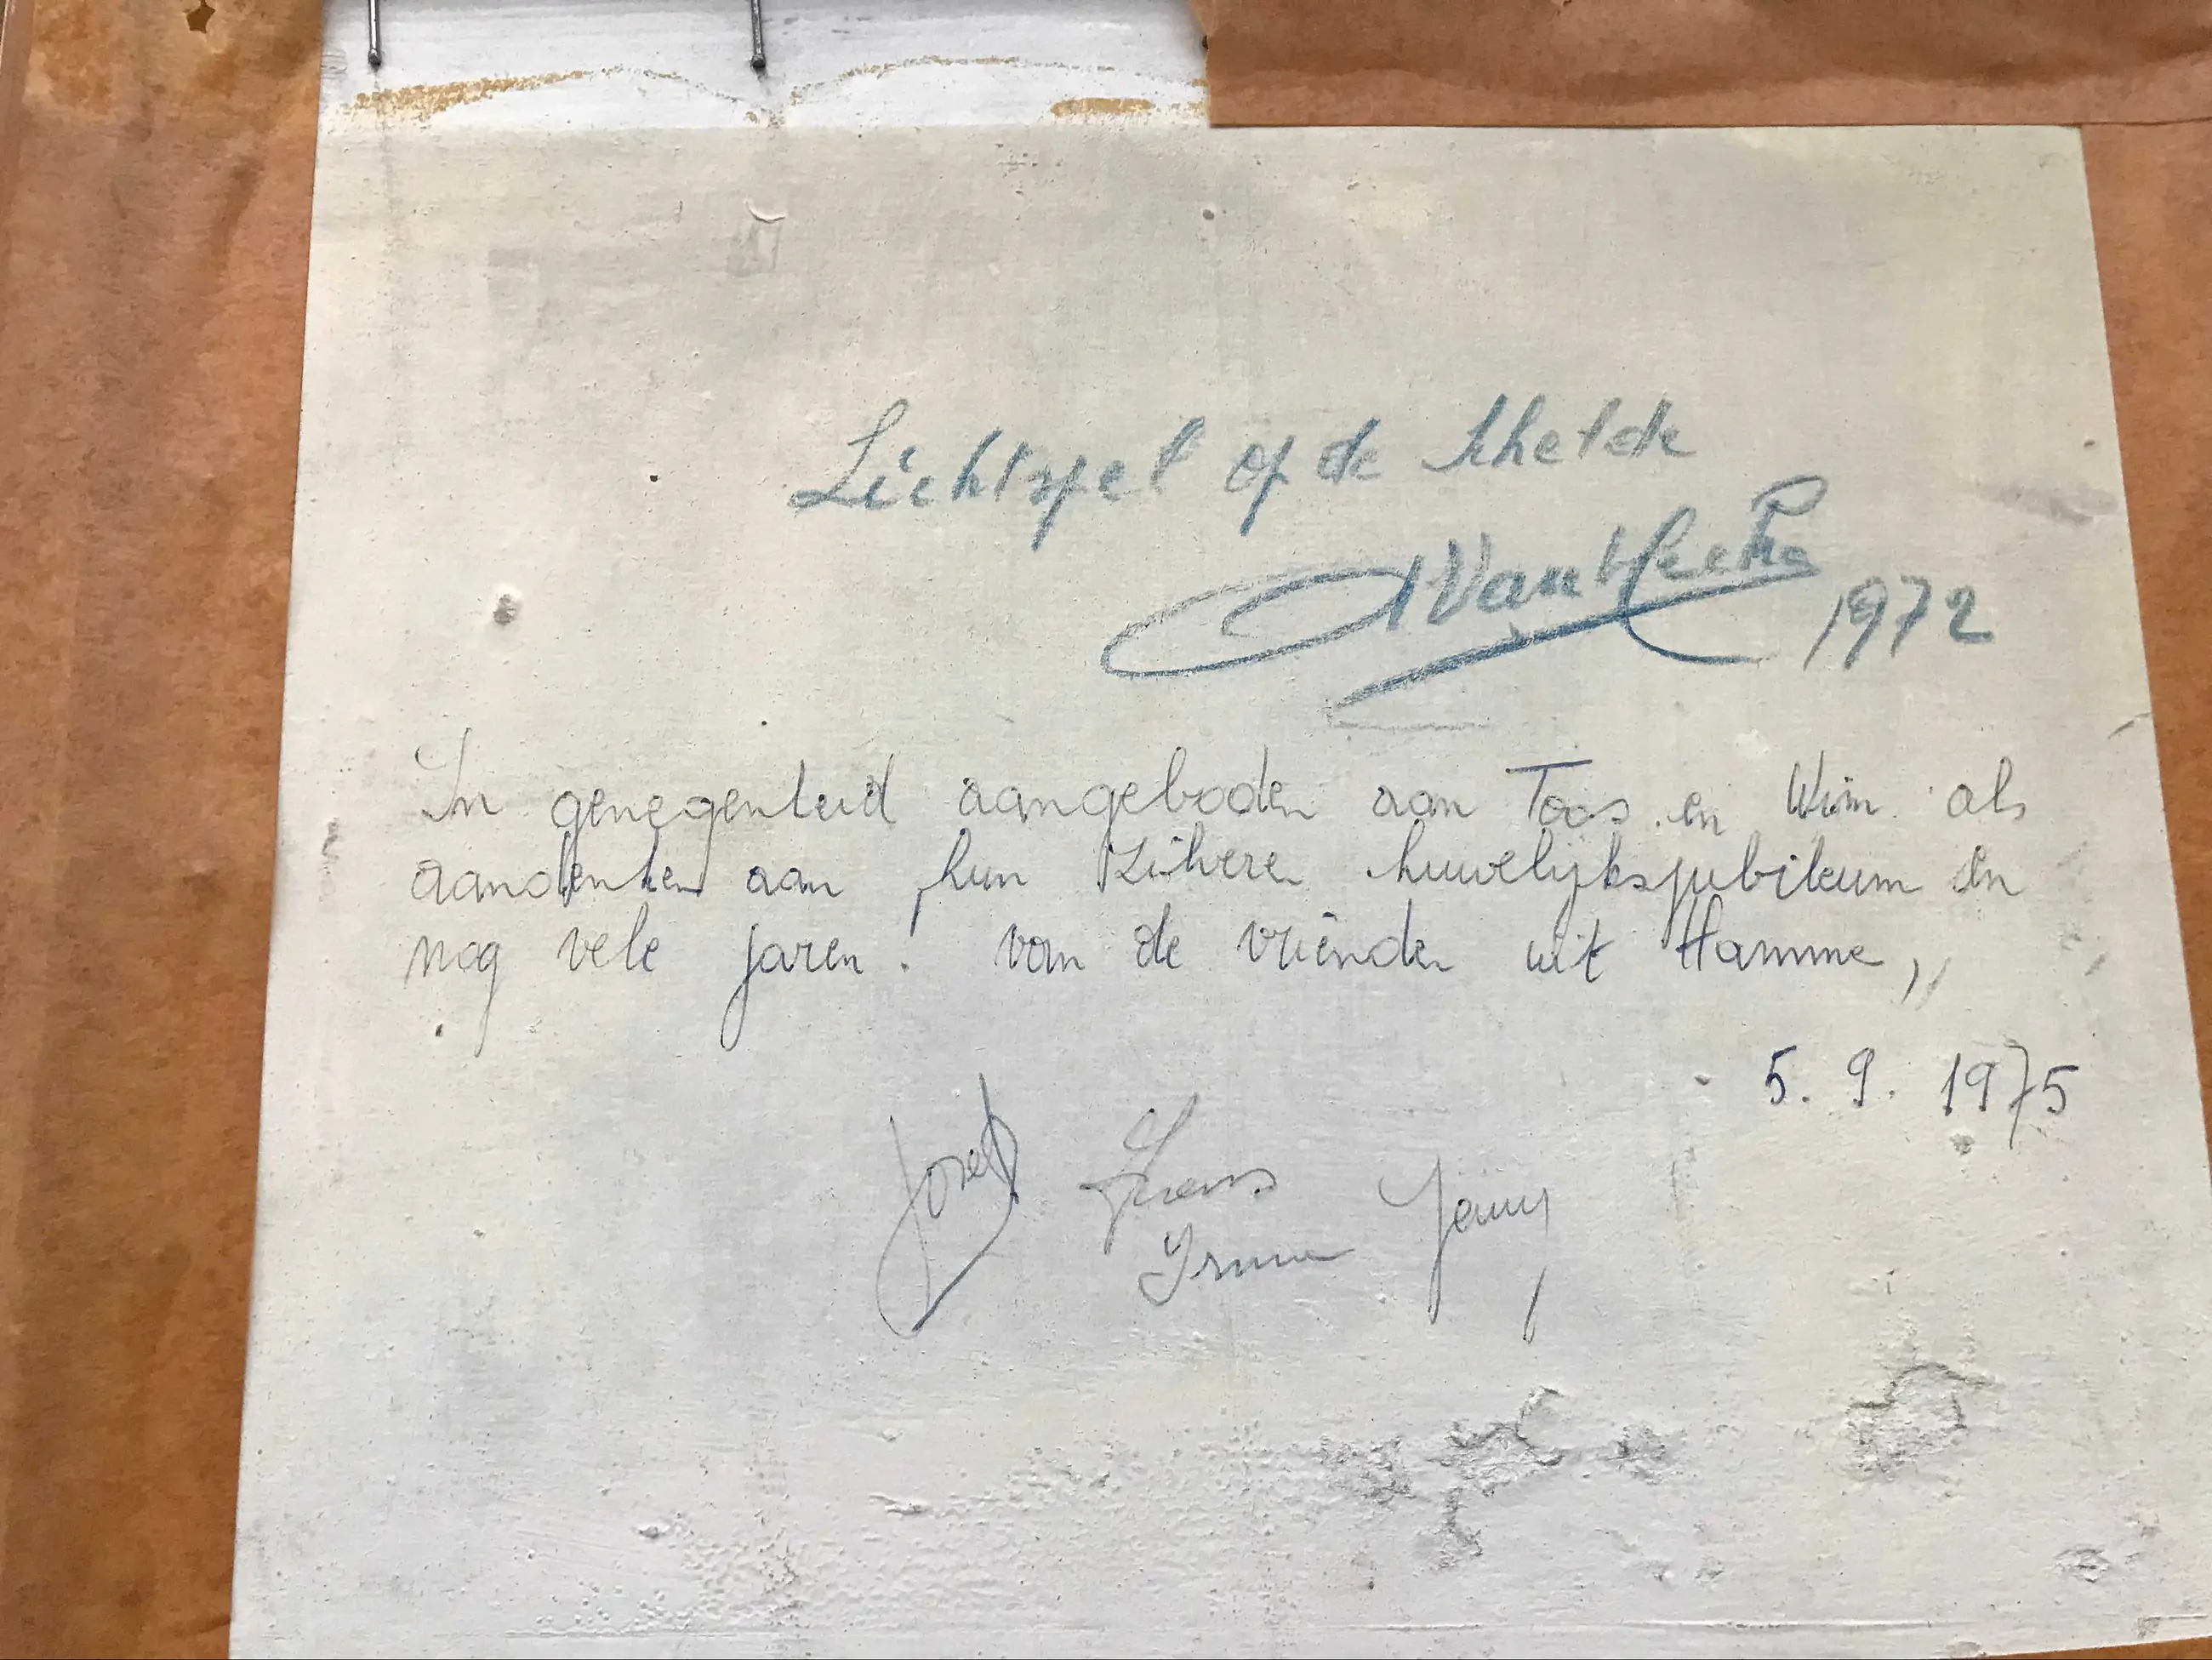 Lichtspel op de Schelde
Van Hecke 1972
In genegenheid aangeboden aan Toos en Wim als
aandenken aan hun zilveren huwelijksjubileum en
nog vele jaren! van de vrienden uit Hamme,
5. 9. 1975
Jozef Frans Jenny
Irma